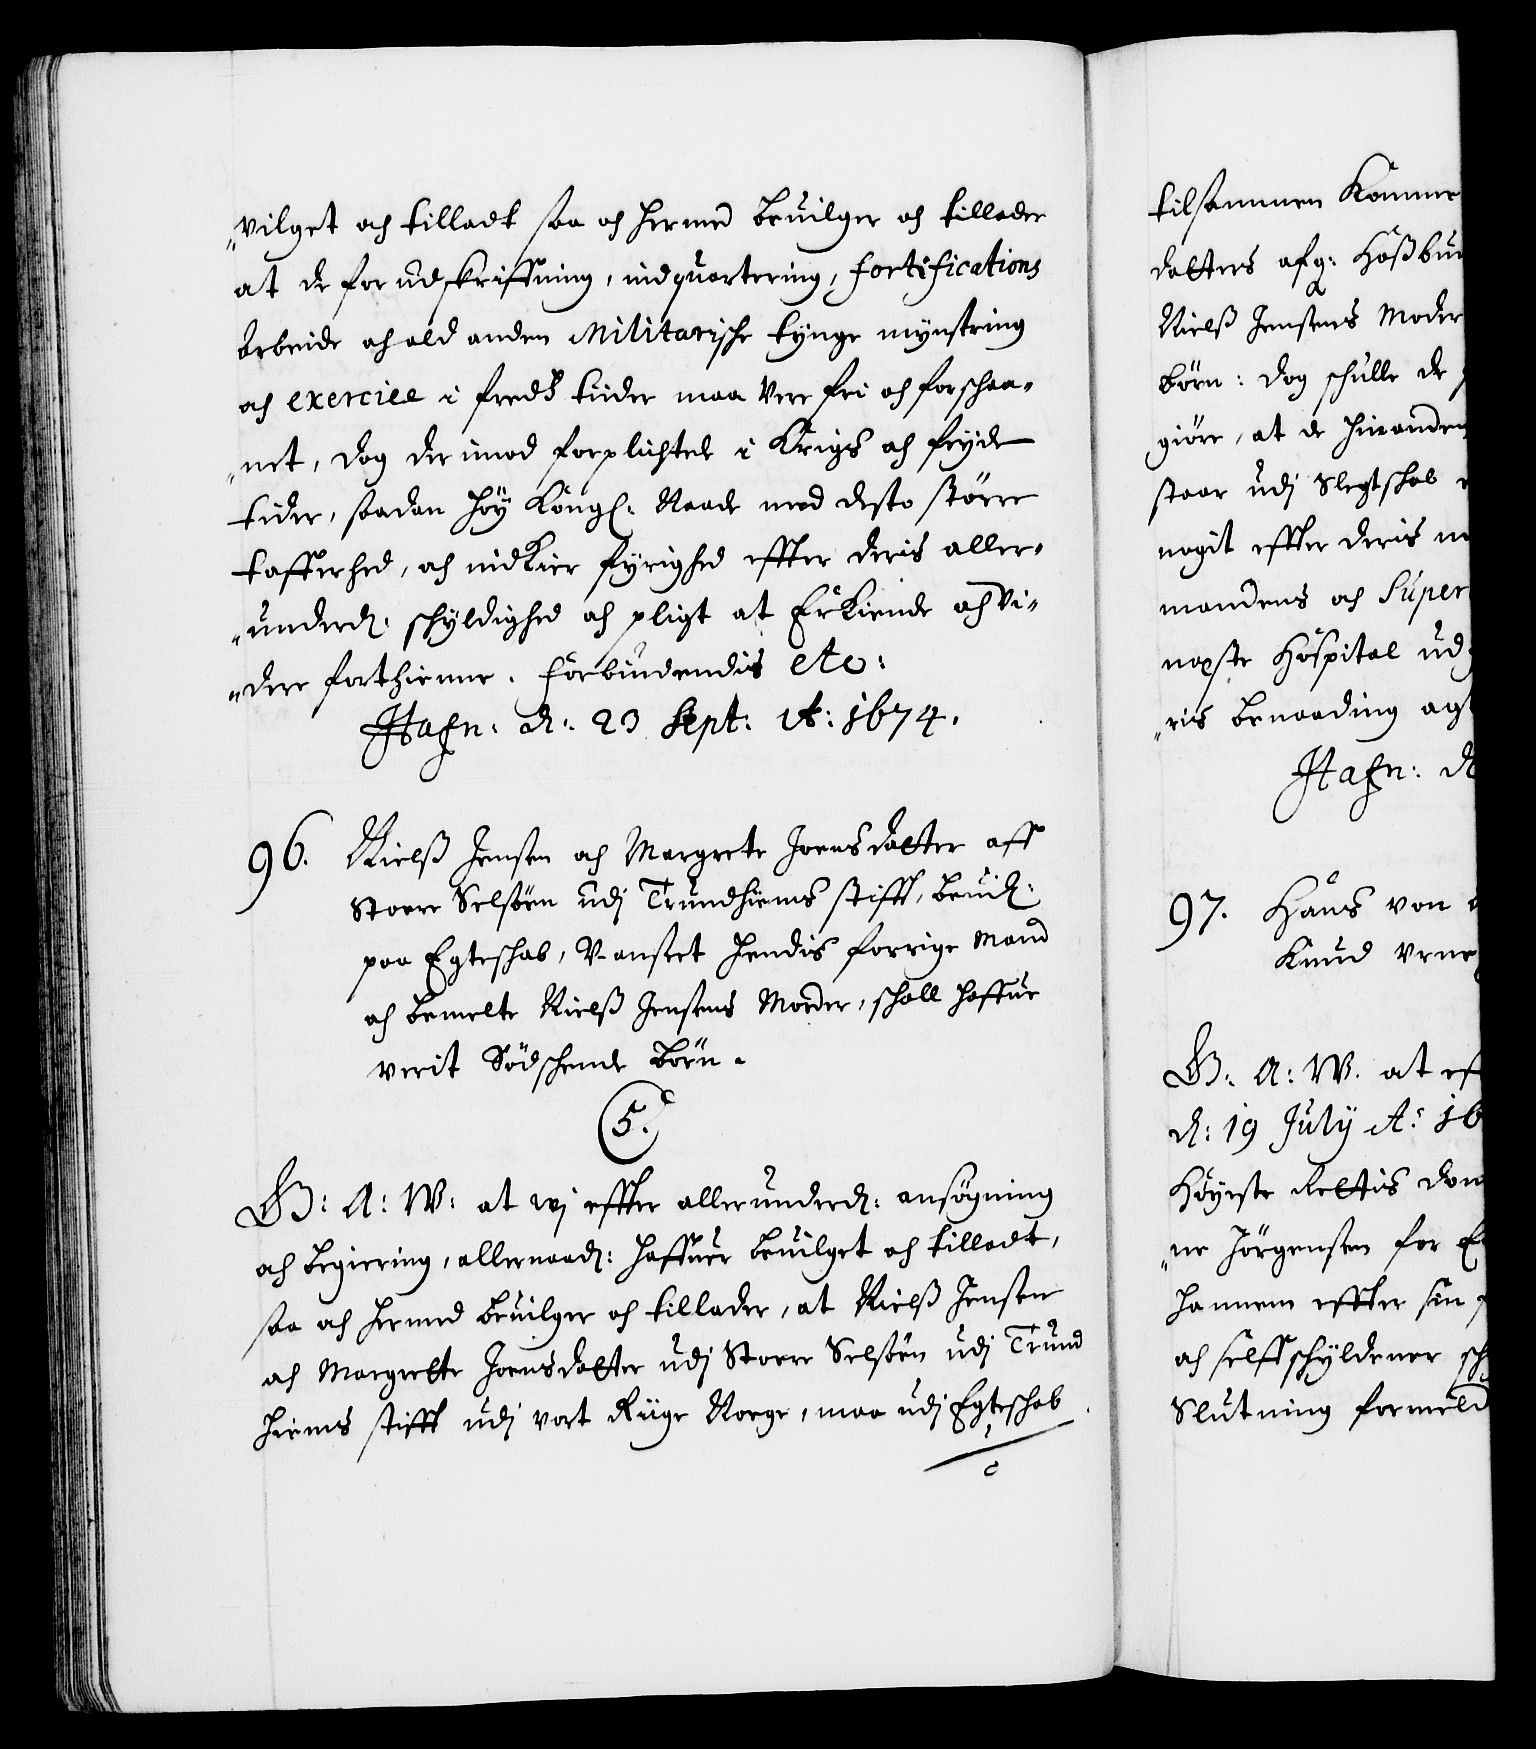 "vilget och tilladt saa og hermed beuilger og tillader
at de for udskriffning, indquartering, fortifications
Arbeide och ald anden Militarische tynge mynstring
och exercice i freds tiider maa vere fri och forschaa-
"net, dog der imod forplichtede i Krigs och feyde
tider, saadan höy Kongl: Naade med desto större
tafferhed, och nidkier fyrighed effter deris aller-
"underd: schyldighed och pligt at Erkiende och vi-
"dere fortienne. forbiudendis etc:
Hafn: d: 23 Sept: A: 1674.
96. Nielß Jensen och Margrete Joensdatter aff
Store Selsöen udj Trundhiems stifft, beuil:
paa Egteschab, V-anseet hendis forrige Mand
och bemelte Nielß Jensens Moder, schall haffue
verit Södschende börn.
5.
G: A: W: at wj effter allerunderd: ansögning
och begiering, allernaad: haffuer beuilget och tilladt,
saa och hermed beuilger och tillader, at Nielß Jensen
och Margrette Joensdatter udj Store Selsöen udj Trund
hiems stifft udj vort Riige Norge, maa udj Egteschab
tilsammen Komme
datters afg: Hoßbu
Nielß Jensens Moder
börn: dog schulle de
giöre, at de hinanden
staar udj Slegtschab
nogit effter deris
mandens och Super
neste Hospital ud
"ris benaading agt
Hafn: d
97. Hans von
Knud Vrne
G: A: W: at eff
d: 19 July A: 16
Höyeste Rettis dom
"ne Jörgensen for
hannem effter sin
och selffschyldener sch
Slutning formeld